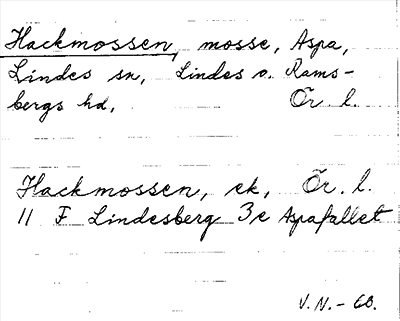 Hackmossen, mosse, Aspa,
Lindes sn, Lindes o. Rams-
bergs hd, Ör. l.
Hackmossen, ek, Ör. l.
11 F Lindesberg 3e Aspafallet
V.N. - 60.